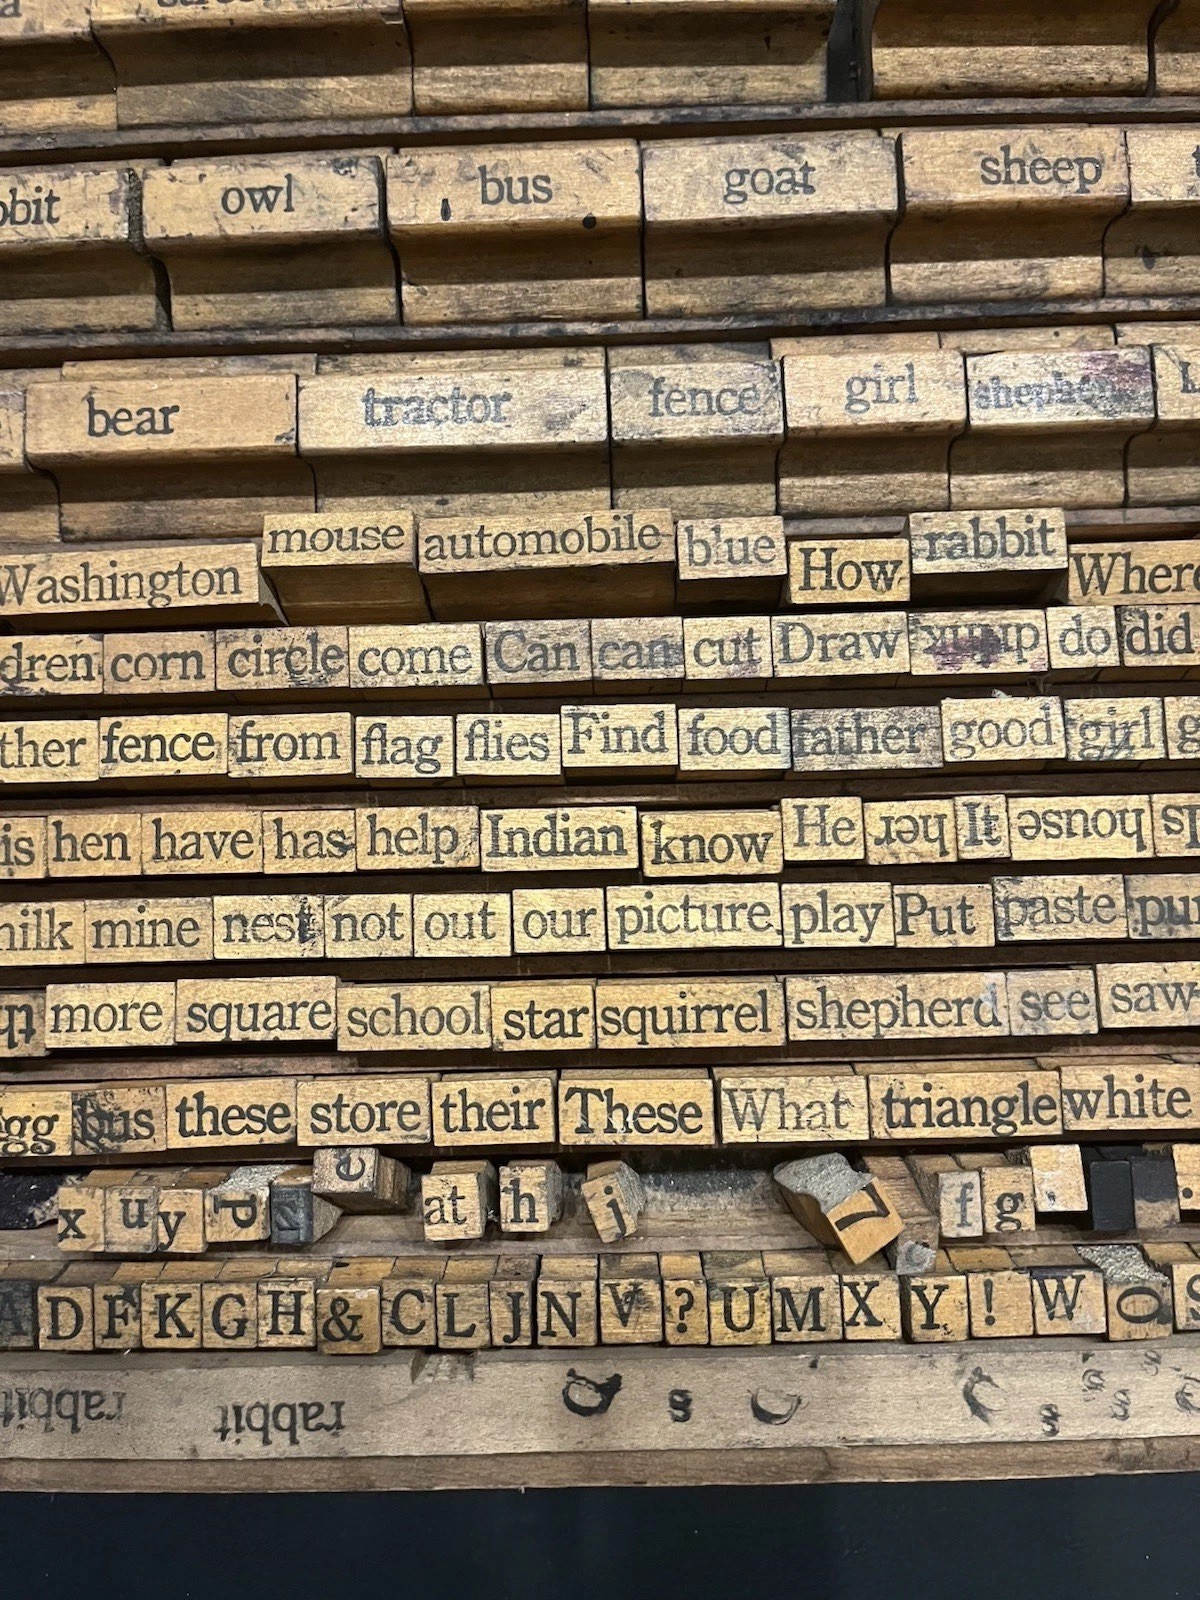 owl bus goat sheep
bear tractor fence girl
Washington mouse automobile blue How rabbit Where
dren corn circle come Can can cut Draw drink do did
ther fence from flag flies Find food father good girl g
is hen have has help Indian know He her It house is
milk mine nest not out our picture play Put paste pu
th more square school star squirrel shepherd see saw
gg bus these store their These What triangle white
x u y p e at h j 7 f g
A D F K G H & C L J N V ? U M X Y ! W O S
rabbit rabbit s